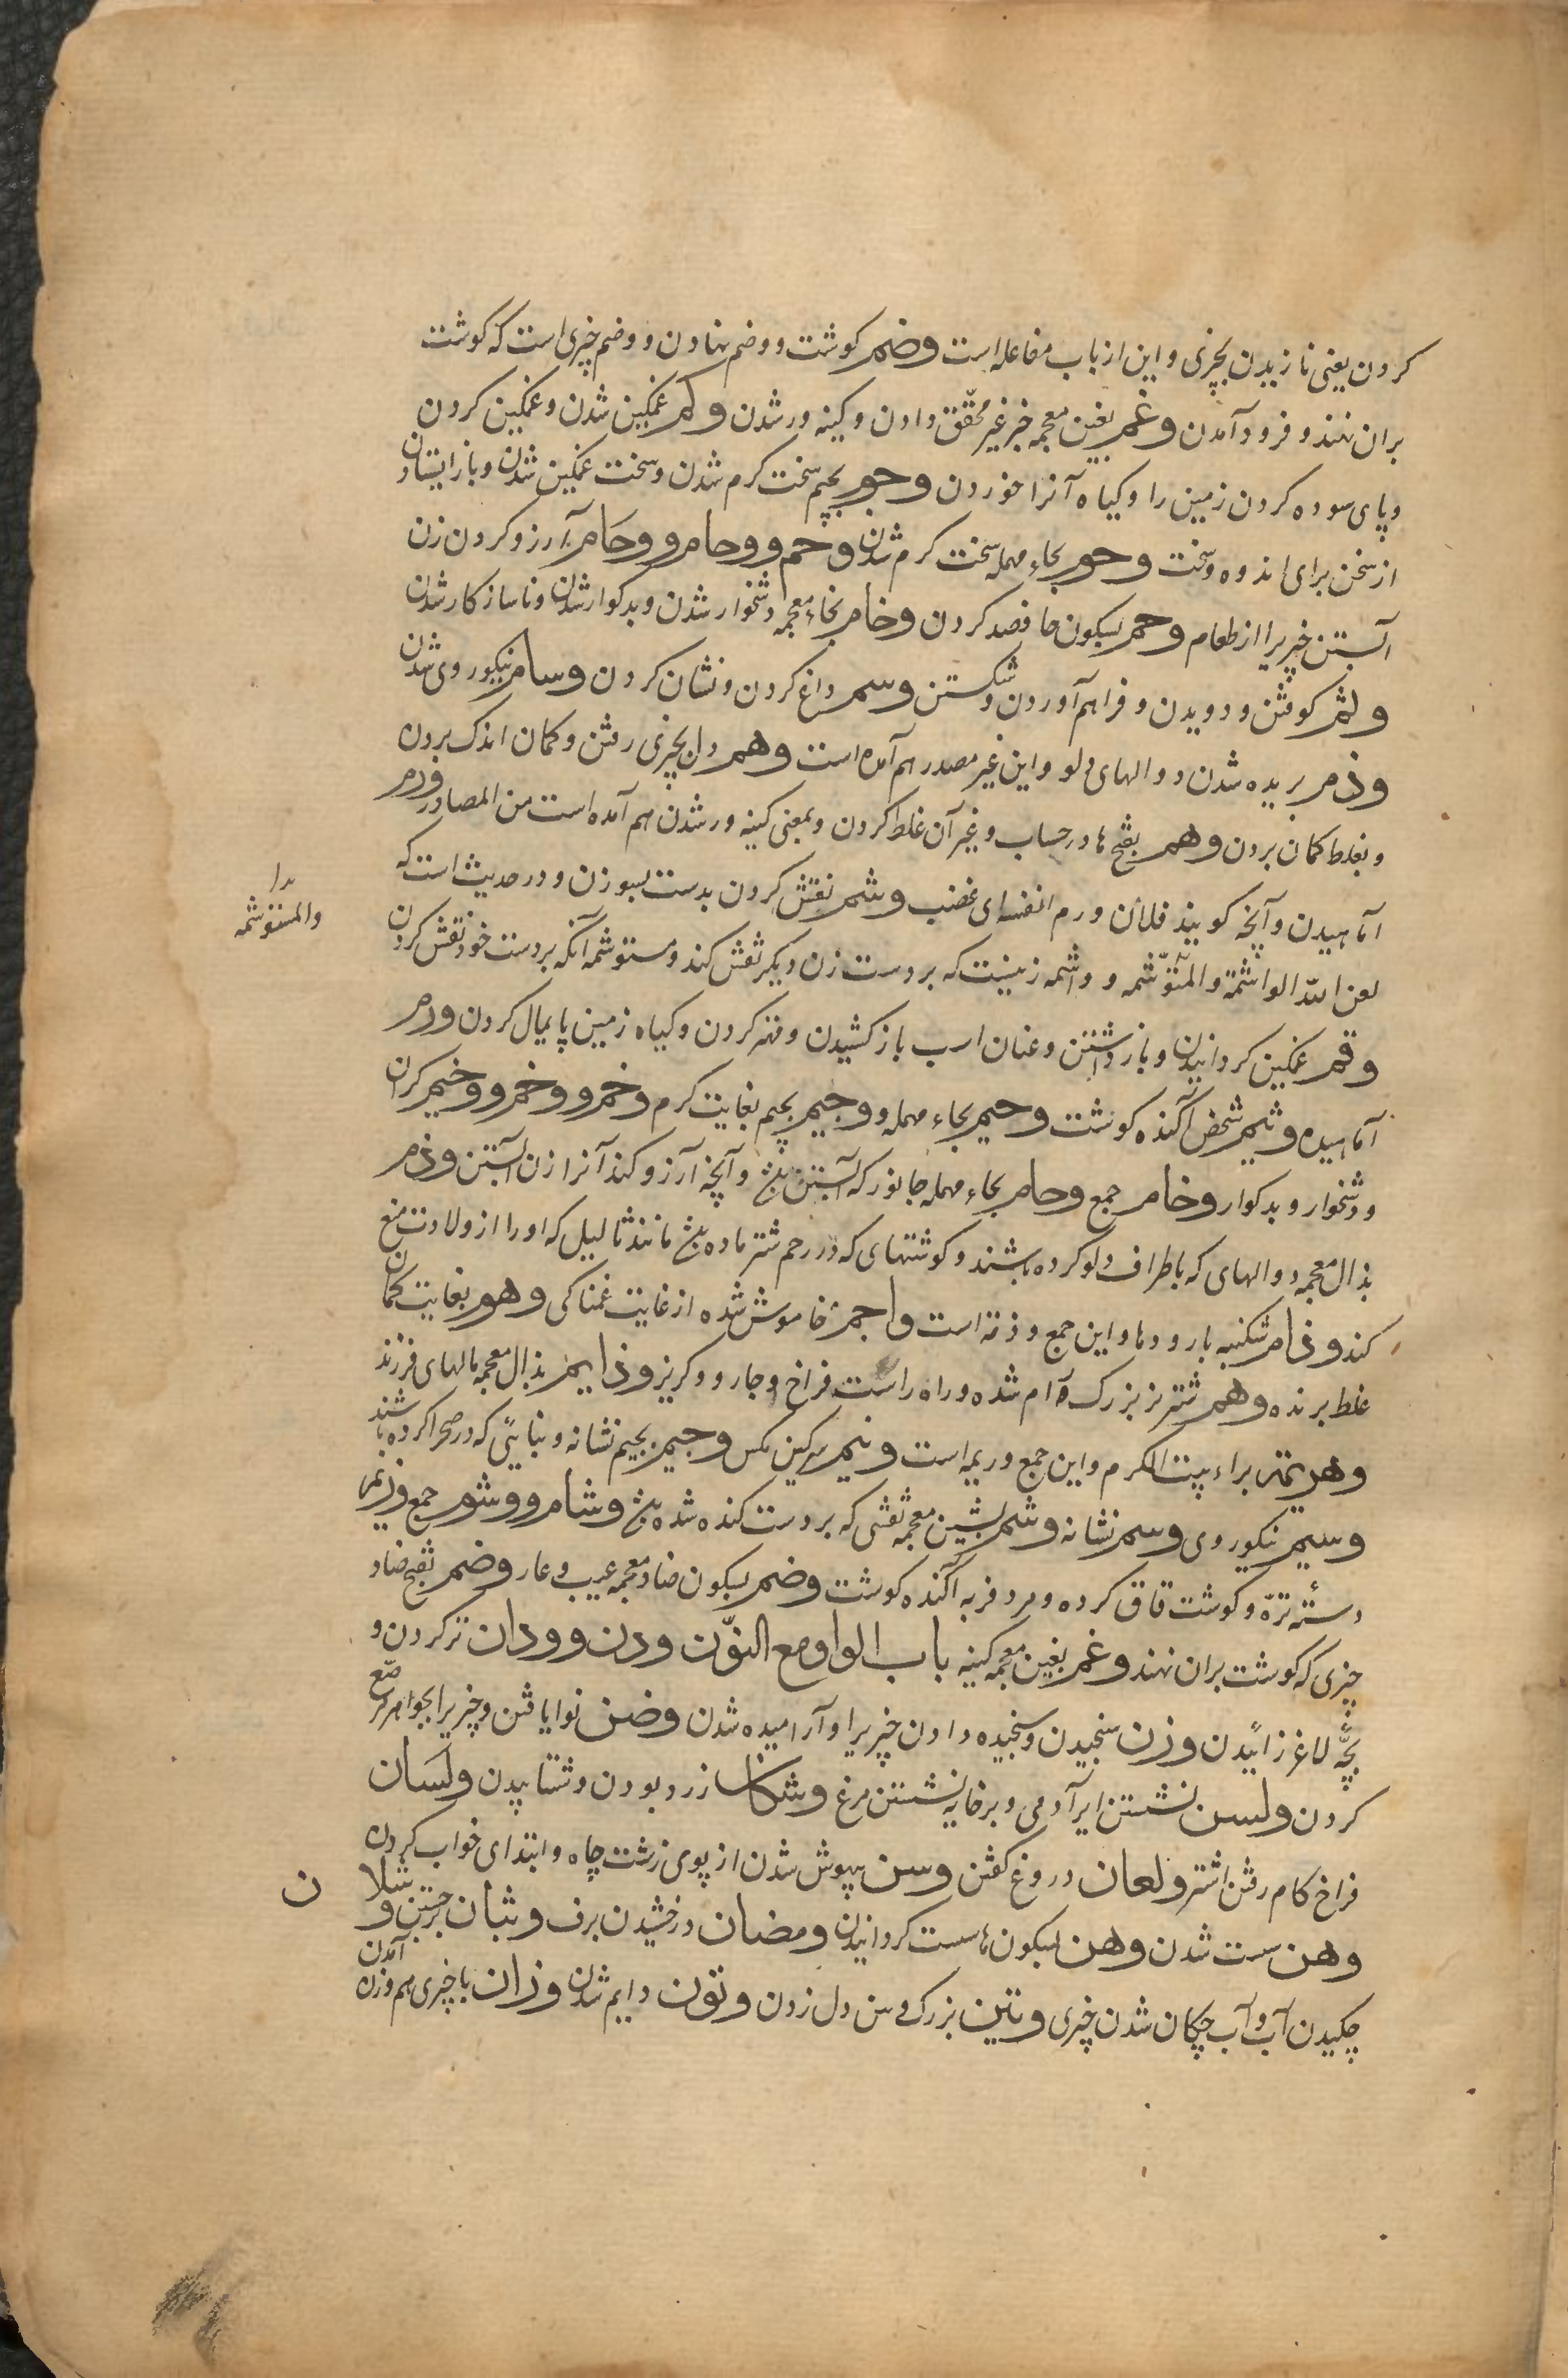 کردن یعنی نازیدن بچیزی و این از باب مفاعله است وضم کوشت و وضم نهادن و وضم چیزی است که کوشت
بران نهند و فرود آمدن وغم بغین معجمه خبر غیر محقّق دادن و کینه ور شدن وکم غمکین شدن و غمکین کردن
و پای سوده کردن زمین را و کیاه آنرا خوردن وجوم بجیم سخت کرم شدن و سخت غمکین شدن و باز ایستادن
از سخن برای اندوه و سخت وحوم بحاء مهمله سخت کرم شدن وحم و وحام و وحام آرزو کردن زن
آبستن چیزیرا از طعام وحم بسکون حا قصد کردن وخام بخاء معجمه دشخوار شدن و بدکوار شدن و ناسازکار شدن
ولثم کوفتن و دویدن و فراهم آوردن و شکستن وسم داغ کردن و نشان کردن وسام نیکوروی شدن
وذم بریده شدن دوالهای دلو و این غیر مصدر هم آمده است وهم دل بچیزی رفتن و کمان اندک بردن
و بغلط کمان بردن وهم بفتح ها در حساب و غیر آن غلط کردن و بمعنی کینه ور شدن هم آمده است من المصادر ورم
آماهیدن و آنچه کویند فلان ورم انفه ای غضب وشم نقش کردن بدست بسوزن و در حدیث است که
لعن اللّه الواشمة والمتوّشمه و واشمه زنیست که بر دست زن دیکر نقش کند و مستوشمه آنکه بر دست خود نقش کردن
وقم غمکین کردانیدن و باز داشتن و عنان اسب باز کشیدن و قهر کردن و کیاه زمین پایمال کردن ورم
آماهیده وثیم شخص آکنده کوشت وحیم بحاء مهمله و وجیم بجیم بغایت کرم وخم و وخم و وخیم کران
و دشخوار و بدکوار وخام جمع وحام بحاء مهمله جانور که آبستن باشد و آنچه آرزو کند آنرا زن آبستن وذم
بذال معجمه دوالهای که باطراف دلو کرده باشند و کوشتهای که در رحم شتر ماده باشد مانند ثالیل که او را از ولادت منع
کند وذام شکنبه با رودها و این جمع وذمة است واجم خاموش شده از غایت غمناکی وهوم بغایت کمان
غلط برنده وهم شتر نر بزرک رام شده و راه راست فراخ وجار و وکریز وذایم بذال معجمه مالهای فرزند
وهریمه براء بیت الکرم و این جمع وریمه است ونیم سرکین مکس وجیم بجیم نشانه و بنایی که در صحرا کرده باشند
وسیم نیکوروی وسم نشانه وشم بشین معجمه نقشی که بر دست کنده شده باشد وشام و وشوم جمع وزیم
دسته ترّه و کوشت قاق کرده و مرد فربه آکنده کوشت وضم بسکون ضاد معجمه عیب و عار وضم بفتح ضاد
چیزی که کوشت بران نهند وغم بغین معجمه کینه باب الواو مع النّون ودن و ودان تر کردن و
بچّه لاغر زائیدن وزن سنجیدن و سنجیده دادن چیزیرا و آرامیده شدن وضن نوا یافتن و چیزیرا بجواهر مرصّع
کردن ولسن نشستن ایر آدمی و بر خایه نشستن مرغ وشکان زرد بودن و شتابیدن ولسان
فراخ کام رفتن اشتر ولعان دروغ کفتن وسن بیهوش شدن از بوی زشت چاه و ابتدای خواب کردن
وهن سست شدن وهن بسکون ها سست کردانیدن ومضان درخشیدن برف وثبان برجستن و
چکیدن آب و آب چکان شدن چیزی وتین بزرک و من دل زدن وتون دایم شدن وزان با چیزی هم وزن آمدن
والمستوشمه
ن